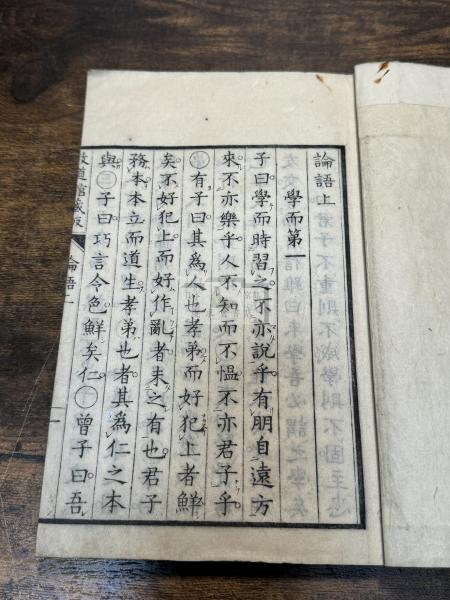 論語上
學而第一
子曰學而時習之不亦說乎有朋自遠方
來不亦樂乎人不知而不慍不亦君子乎
有子曰其爲人也孝弟而好犯上者鮮
矣不好犯上而好作亂者未之有也君子
務本本立而道生孝弟也者其爲仁之本
與子曰巧言令色鮮矣仁曾子曰吾
道館藏版
論語上